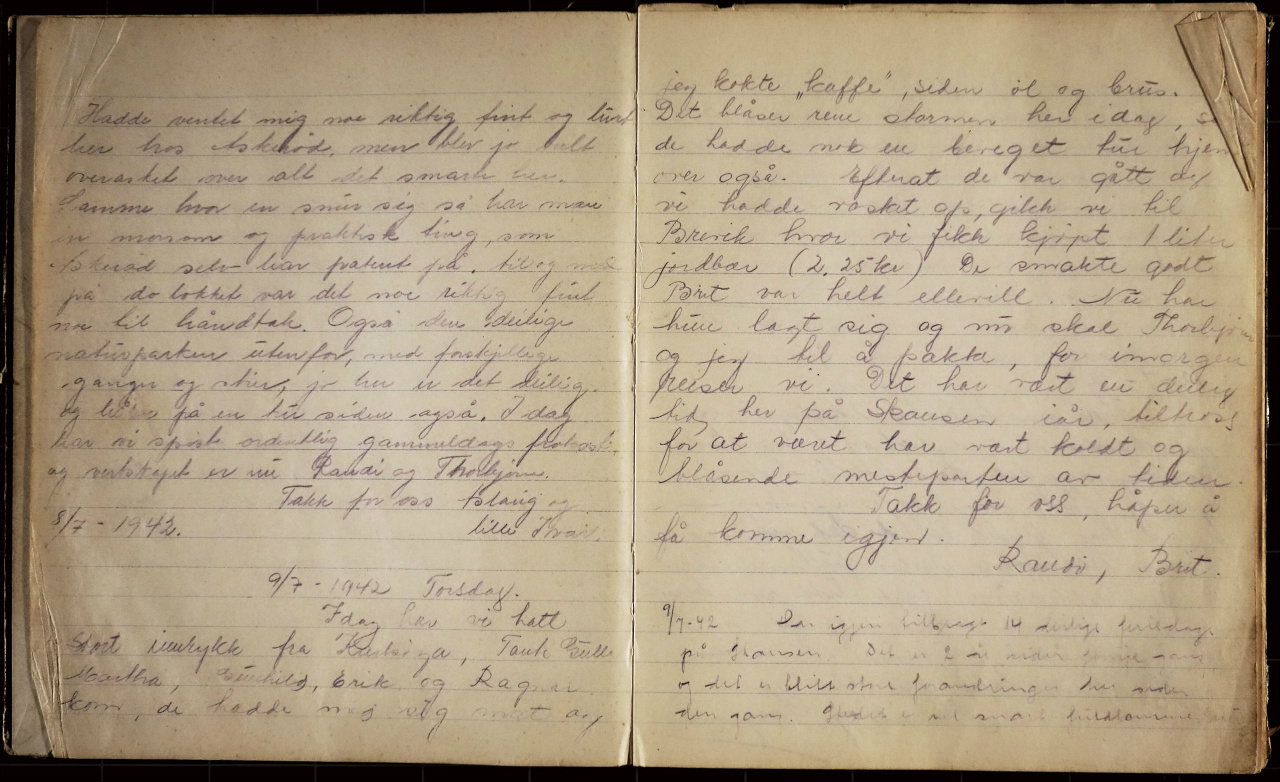 Hadde ventet mig noe riktig fint og
her hos Askerød, men blev jo helt
overasket over alt det smarte her.
Samme hvor en snur sig så har man
en morsom og praktisk ting, som
Askerød selv har patent på, til og med
på do lokket var det noe riktig fint
noe til håndtak. Også den deilige
naturparken utenfor, med forskjellige
ganger og stier, jo her er det deilig
og på en tur siden også. I dag
har vi spist ordentlig gammeldags frokost,
og vertskapet er nu Randi og Thorbjørn.
Takk for oss Aslaug og
8/7 - 1942. lille Ivar.
9/7 - 1942 Torsdag.
Idag har vi hatt
Stort innrykk fra Tante Gulle
Martha, Gunhild, Erik og Ragnar
kom, de hadde med sig mat og
jeg kokte „kaffe", siden øl og brus.
Det blåser rene stormen her idag, så
de hadde nok en beveget tur hjem
over også. Efterat de var gått og
vi hadde vasket op, gikk vi til
Brevik hvor vi fikk kjøpt 1 liter
jordbær (2,25 kr) De smakte godt
Brit var helt ellevill. Nu har
hun lagt sig og nu skal Thorbjørn
og jeg til å pakke, for imorgen
reiser vi. Det har vært en deilig
tid her på Skansen iår, tiltross
for at været har vært koldt og
blåsende mesteparten av tiden.
Takk for oss, håper å
få komme igjen.
Randi, Brit.
9/7-42 Har igjen tilbragt 14 deilige feriedage
på Skansen. Det er 2 år siden gang
og det er blitt store forandringer her siden
den gang.